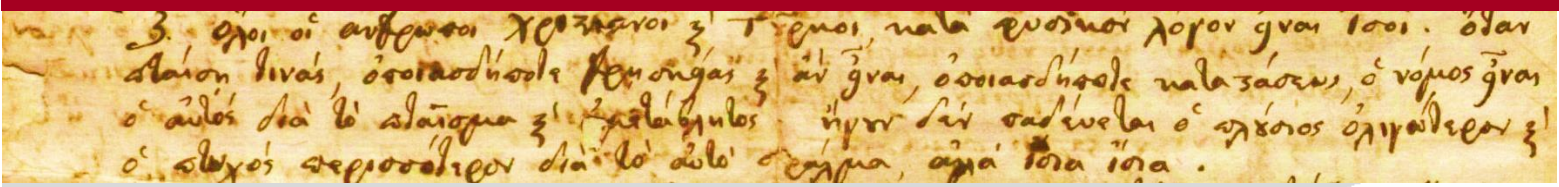 3. ὅλοι οἱ ἄνθρωποι Χριστιανοὶ ϗ Τȣ́ρκοι, κατὰ φυσικὸν λόγον εἶναι ἴσοι. ὅταν
πταίσῃ τινάς, ὁποιασδήποτε θρησκείας ϗ ἂν εἶναι, ὁποιασδήποτε καταστάσεως, ὁ νόμος εἶναι
ὁ αὐτὸς διὰ τὸ πταῖσμα ϗ ἀμετάβλητος ἤγȣν δὲν παιδεύεται ὁ πλȣ́σιος ὀλιγώτερον ϗ
ὁ πτωχὸς περισσότερον διὰ τὸ αὐτὸ σφάλμα, ἀλλὰ ἴσια ἴσια.